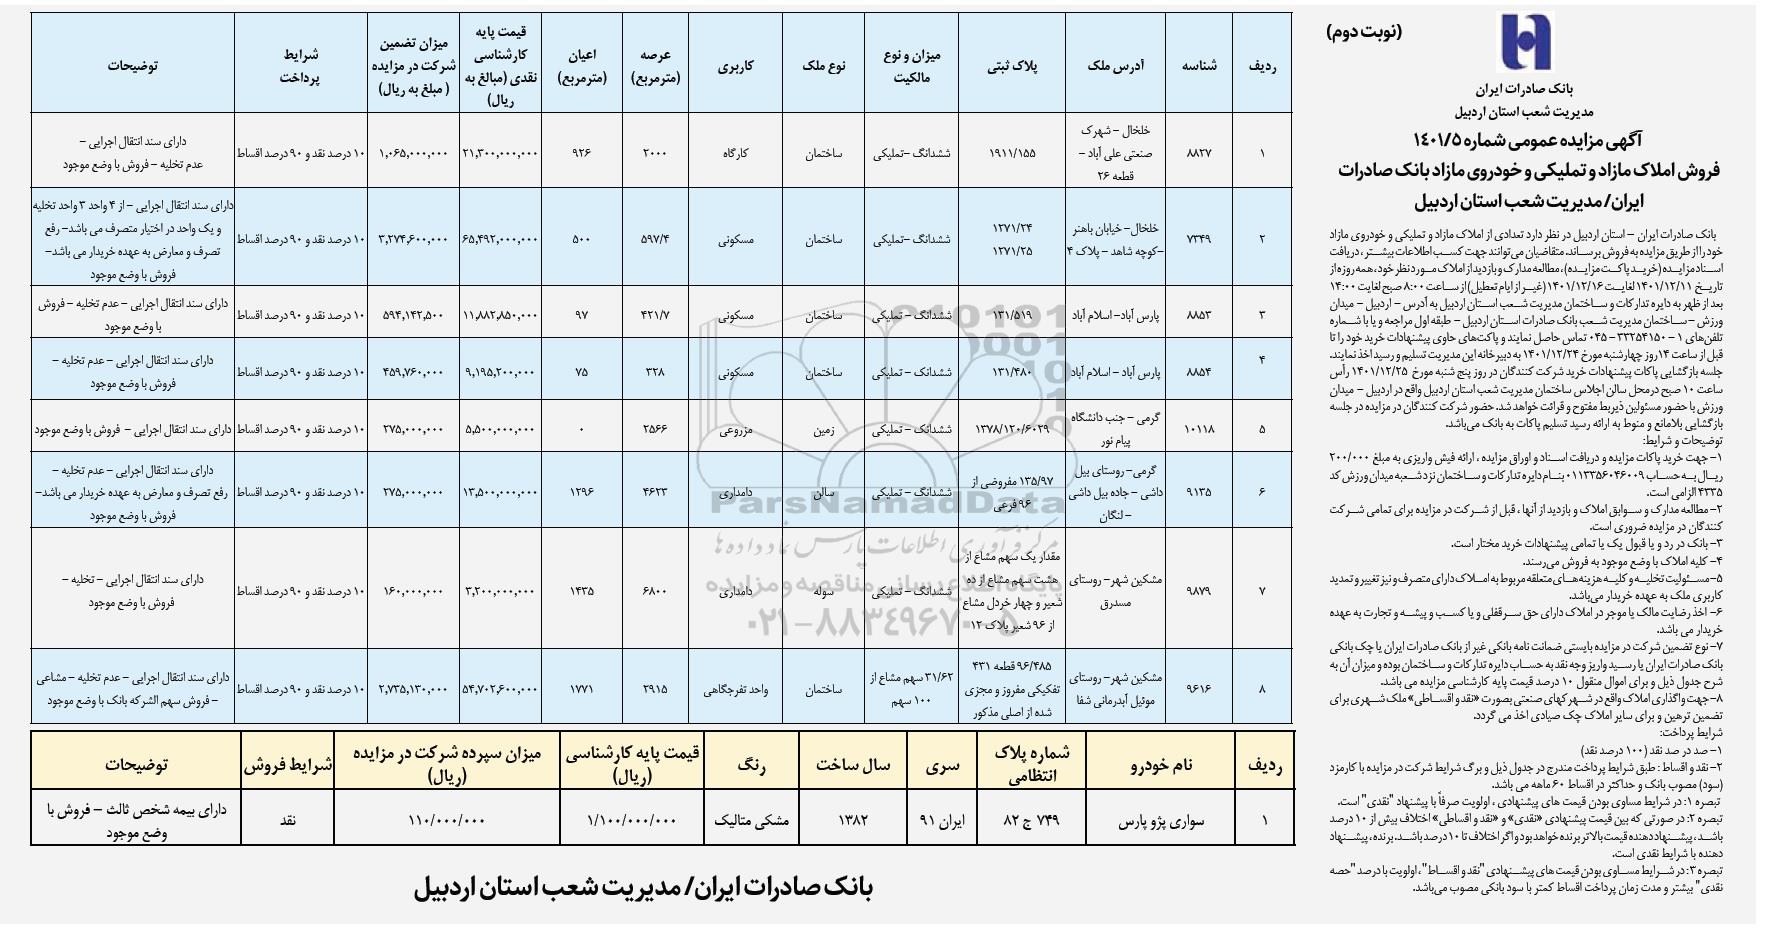 (نوبت دوم)
بانک صادرات ایران
مدیریت شعب استان اردبیل
آگهی مزایده عمومی شماره ۱۴۰۱/۵
فروش املاک مازاد و تملیکی و خودروی مازاد بانک صادرات
ایران/ مدیریت شعب استان اردبیل
بانک صادرات ایران – استان اردبیل در نظر دارد تعدادی از املاک مازاد و تملیکی و خودروی مازاد
خود را از طریق مزایده به فروش برساند. متقاضیان می‌توانند جهت کسب اطلاعات بیشتر ، دریافت
اسناد مزایده (خرید پاکت مزایده) ، مطالعه مدارک و بازدید از املاک مورد نظر خود، همه روزه از
تاریخ ۱۴۰۱/۱۲/۱۱ لغایت ۱۴۰۱/۱۲/۱۶ (غیر از ایام تعطیل) از ساعت ۸:۰۰ صبح لغایت ۱۴:۰۰
بعد از ظهر به دایره تدارکات و ساختمان مدیریت شعب استان اردبیل به آدرس – اردبیل – میدان
ورزش – ساختمان مدیریت شعب بانک صادرات استان اردبیل – طبقه اول مراجعه و یا با شماره
تلفن‌های ۱ – ۳۳۲۵۴۱۵۰ – ۰۴۵ تماس حاصل نمایند و پاکت‌های حاوی پیشنهادات خرید خود را تا
قبل از ساعت ۱۴ روز چهارشنبه مورخ ۱۴۰۱/۱۲/۲۴ به دبیرخانه این مدیریت تسلیم و رسید اخذ نمایند.
جلسه بازگشایی پاکات پیشنهادات خرید شرکت کنندگان در روز پنج شنبه مورخ ۱۴۰۱/۱۲/۲۵ رأس
ساعت ۱۰ صبح در محل سالن اجلاس ساختمان مدیریت شعب استان اردبیل واقع در اردبیل – میدان
ورزش با حضور مسئولین ذیربط مفتوح و قرائت خواهد شد. حضور شرکت کنندگان در مزایده در جلسه
بازگشایی بلامانع و منوط به ارائه رسید تسلیم پاکات به بانک می‌باشد.
توضیحات و شرایط:
۱– جهت خرید پاکات مزایده و دریافت اسناد و اوراق مزایده ، ارائه فیش واریزی به مبلغ ۲۰۰/۰۰۰
ریال به حساب ۰۱۱۳۳۵۶۰۴۶۰۰۹ بنام دایره تدارکات و ساختمان نزد شعبه میدان ورزش کد
۴۳۳۵ الزامی است.
۲– مطالعه مدارک و سوابق املاک و بازدید از آنها ، قبل از شرکت در مزایده برای تمامی شرکت
کنندگان در مزایده ضروری است.
۳– بانک در رد و یا قبول یک یا تمامی پیشنهادات خرید مختار است.
۴– کلیه املاک با وضع موجود به فروش می‌رسند.
۵– مسئولیت تخلیه و کلیه هزینه‌های متعلقه مربوط به املاک دارای متصرف و نیز تغییر و تمدید
کاربری ملک به عهده خریدار می‌باشد.
۶– اخذ رضایت مالک یا موجر در املاک دارای حق سرقفلی و یا کسب و پیشه و تجارت به عهده
خریدار می باشد.
۷– نوع تضمین شرکت در مزایده بایستی ضمانت نامه بانکی غیر از بانک صادرات ایران یا چک بانکی
بانک صادرات ایران یا رسید واریز وجه نقد به حساب دایره تدارکات و ساختمان بوده و میزان آن به
شرح جدول ذیل و برای اموال منقول ۱۰ درصد قیمت پایه کارشناسی مزایده می باشد.
۸– جهت واگذاری املاک واقع در شهر کهای صنعتی بصورت «نقد و اقساطی» ملک شهری برای
تضمین ترهین و برای سایر املاک چک صیادی اخذ می گردد.
شرایط پرداخت:
۱– صد در صد نقد (۱۰۰ درصد نقد)
۲– نقد و اقساط : طبق شرایط پرداخت مندرج در جدول ذیل و برگ شرایط شرکت در مزایده با کارمزد
(سود) مصوب بانک و حداکثر در اقساط ۶۰ ماهه می باشد.
تبصره ۱: در شرایط مساوی بودن قیمت های پیشنهادی ، اولویت صرفاً با پیشنهاد "نقدی" است.
تبصره ۲: در صورتی که بین قیمت پیشنهادی «نقدی» و «نقد و اقساطی» اختلاف بیش از ۱۰ درصد
باشد ، پیشنهاد دهنده قیمت بالاتر برنده خواهد بود و اگر اختلاف تا ۱۰ درصد باشد. برنده ، پیشنهاد
دهنده با شرایط نقدی است.
تبصره ۳: در شرایط مساوی بودن قیمت های پیشنهادی "نقد و اقساط" ، اولویت با درصد "حصه
نقدی" بیشتر و مدت زمان پرداخت اقساط کمتر با سود بانکی مصوب می‌باشد.
ردیف شناسه آدرس ملک پلاک ثبتی میزان و نوع مالکیت نوع ملک کاربری عرصه (مترمربع) اعیان (مترمربع) قیمت پایه کارشناسی نقدی (مبالغ به ریال) میزان تضمین شرکت در مزایده ( مبلغ به ریال) شرایط پرداخت توضیحات
۱ ۸۸۲۷ خلخال – شهرک صنعتی علی آباد – قطعه ۲۶ ۱۹۱۱/۱۵۵ ششدانگ –تملیکی ساختمان کارگاه ۲۰۰۰ ۹۲۶ ۲۱,۳۰۰,۰۰۰,۰۰۰ ۱,۰۶۵,۰۰۰,۰۰۰ ۱۰ درصد نقد و ۹۰ درصد اقساط دارای سند انتقال اجرایی – عدم تخلیه – فروش با وضع موجود
۲ ۷۳۴۹ خلخال– خیابان باهنر –کوچه شاهد – پلاک ۴ ۱۲۷۱/۲۴ ۱۲۷۱/۲۵ ششدانگ –تملیکی ساختمان مسکونی ۵۹۷/۴ ۵۰۰ ۶۵,۴۹۲,۰۰۰,۰۰۰ ۳,۲۷۴,۶۰۰,۰۰۰ ۱۰ درصد نقد و ۹۰ درصد اقساط دارای سند انتقال اجرایی – از ۴ واحد ۳ واحد تخلیه و یک واحد در اختیار متصرف می باشد– رفع تصرف و معارض به عهده خریدار می باشد– فروش با وضع موجود
۳ ۸۸۵۳ پارس آباد– اسلام آباد ۱۳۱/۵۱۹ ششدانگ – تملیکی ساختمان مسکونی ۴۲۱/۷ ۹۷ ۱۱,۸۸۲,۸۵۰,۰۰۰ ۵۹۴,۱۴۲,۵۰۰ ۱۰ درصد نقد و ۹۰ درصد اقساط دارای سند انتقال اجرایی – عدم تخلیه – فروش با وضع موجود
۴ ۸۸۵۴ پارس آباد – اسلام آباد ۱۳۱/۴۸۰ ششدانگ – تملیکی ساختمان مسکونی ۳۲۸ ۷۵ ۹,۱۹۵,۲۰۰,۰۰۰ ۴۵۹,۷۶۰,۰۰۰ ۱۰ درصد نقد و ۹۰ درصد اقساط دارای سند انتقال اجرایی – عدم تخلیه – فروش با وضع موجود
۵ ۱۰۱۱۸ گرمی – جنب دانشگاه پیام نور ۱۳۷۸/۱۲۰/۶۰۲۹ ششدانگ – تملیکی زمین مزروعی ۲۵۶۶ ۰ ۵,۵۰۰,۰۰۰,۰۰۰ ۲۷۵,۰۰۰,۰۰۰ ۱۰ درصد نقد و ۹۰ درصد اقساط دارای سند انتقال اجرایی – فروش با وضع موجود
۶ ۹۱۳۵ گرمی– روستای بیل داشی – جاده بیل داشی – لنگان ۱۳۵/۹۷ مفروضی از ۹۶ فرعی ششدانگ – تملیکی سالن دامداری ۴۶۲۳ ۱۲۹۶ ۱۳,۵۰۰,۰۰۰,۰۰۰ ۲۷۵,۰۰۰,۰۰۰ ۱۰ درصد نقد و ۹۰ درصد اقساط دارای سند انتقال اجرایی – عدم تخلیه – رفع تصرف و معارض به عهده خریدار می باشد– فروش با وضع موجود
۷ ۹۸۷۹ مشکین شهر– روستای مسدرق مقدار یک سهم مشاع از هشت سهم مشاع از ده شعیر و چهار خردل مشاع از ۹۶ شعیر پلاک ۱۲ ششدانگ – تملیکی سوله دامداری ۶۸۰۰ ۱۴۳۵ ۳,۲۰۰,۰۰۰,۰۰۰ ۱۶۰,۰۰۰,۰۰۰ ۱۰ درصد نقد و ۹۰ درصد اقساط دارای سند انتقال اجرایی – تخلیه – فروش با وضع موجود
۸ ۹۶۱۶ مشکین شهر– روستای موئیل آبدرمانی شفا ۹۶/۴۸۵ قطعه ۴۳۱ تفکیکی مفروز و مجزی شده از اصلی مذکور ۳۱/۶۲ سهم مشاع از ۱۰۰ سهم ساختمان واحد تفرجگاهی ۲۹۱۵ ۱۷۷۱ ۵۴,۷۰۲,۶۰۰,۰۰۰ ۲,۷۳۵,۱۳۰,۰۰۰ ۱۰ درصد نقد و ۹۰ درصد اقساط دارای سند انتقال اجرایی – عدم تخلیه – مشاعی – فروش سهم الشرکه بانک با وضع موجود
ردیف نام خودرو شماره پلاک انتظامی سری سال ساخت رنگ قیمت پایه کارشناسی (ریال) میزان سپرده شرکت در مزایده (ریال) شرایط فروش توضیحات
۱ سواری پژو پارس ۷۴۹ ج ۸۲ ایران ۹۱ ۱۳۸۲ مشکی متالیک ۱/۱۰۰/۰۰۰/۰۰۰ ۱۱۰/۰۰۰/۰۰۰ نقد دارای بیمه شخص ثالث – فروش با وضع موجود
بانک صادرات ایران/ مدیریت شعب استان اردبیل
ParsNamadData
مرکز فرآوری اطلاعات پارس نماد داده ها
پایگاه اطلاع رسانی مناقصه و مزایده
۰۲۱–۸۸۳۴۹۶۷۰–۵